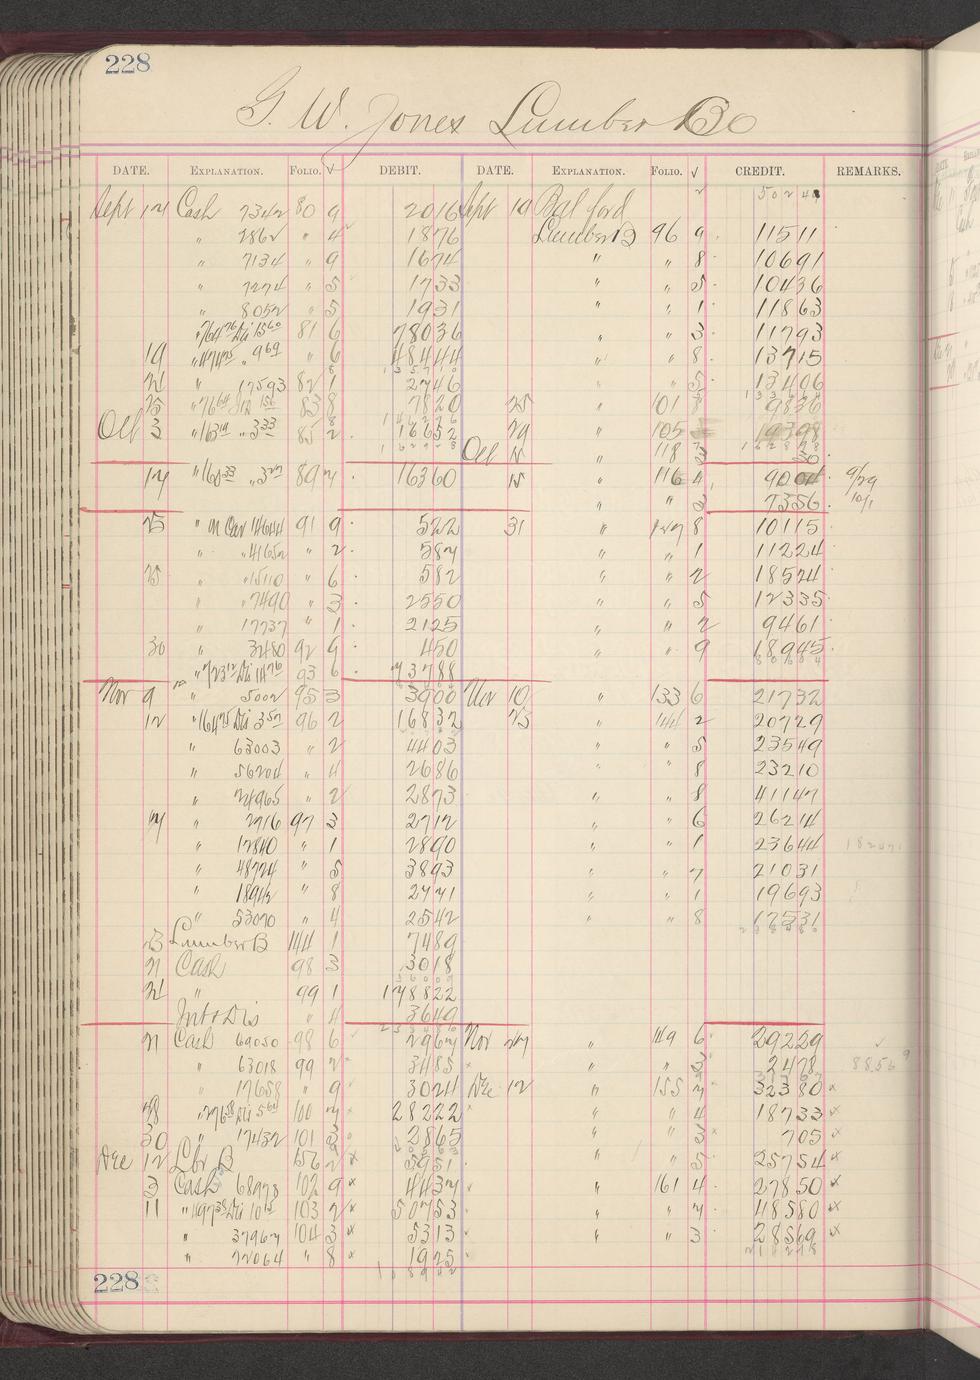 228
G. W. Jones Lumber Co
DATE. EXPLANATION. FOLIO. √ DEBIT. DATE. EXPLANATION. FOLIO. √ CREDIT. REMARKS.
Sept 14 Cash 7342 80 9 2016 Sept 19 Bal ford 50244
" 2862 " 4 1876 Lumber B 96 9 11511
" 7134 " 9 1674 " " 8 10691
" 7274 " 5 1733 " " 5 10436
" 8052 " 5 1931 " " 1 11863
81 6 78036 " " 3 11793
19 " 6 48444 " " 8 13715
" 17593 82 1 2746 " " 5 13406
25 83 8 7820 25 " 101 8 9836
Oct 3 85 2 16652 29 " 105 19398
Oct 118 30
14 89 16360 15 " 116 4 9004 9/29
" " 3 7356 10/1
25 " in Car 14644 91 9 522 31 " 127 8 10115
" " 41652 " 2 584 " " 1 11224
25 " " 15110 " 6 582 " " 2 18524
" " 7490 " 3 2550 " " 5 12335
" 17737 " 1 2125 " " 2 9461
30 " 3480 92 9 450 " " 9 18945
93 6 73788
Nov 9 " 5002 95 3 3900 Nov 10 " 133 6 21732
12 96 2 16832 23 " 144 2 20729
" 63003 " 2 4403 " " 5 23549
" 56204 " 4 2686 " " 8 23210
" 24965 " 2 2873 " " 8 41147
14 " 2716 97 3 2712 " " 6 26214
" 12840 " 1 2890 " " 1 23644
" 48724 " 5 3893 " " 7 21031
" 18942 " 8 2771 " " 1 19693
" 53070 " 4 2542 " " 8 17531
Lumber B 144 1 7489
21 Cash 98 3 3018
" 99 1 178822
Int & Dis " 4 3649
21 Cash 69050 98 6 2967 Nov 27 " 149 6 29229
" 63018 99 2 3485 " " 3 2478 8856
" 17658 " 9 3024 Dec 12 " 155 7 32380
28 100 7 28222 " " 4 18733
30 " 17432 101 3 2865 " " 3 705
Dec 12 Lbr B 156 2 5951 " " 5 25754
3 Cash 68978 102 9 4437 " 161 4 27850
11 103 2 50753 " " 7 48580
" 37967 104 3 5313 " " 3 28569
" 72064 " 8 1925
228